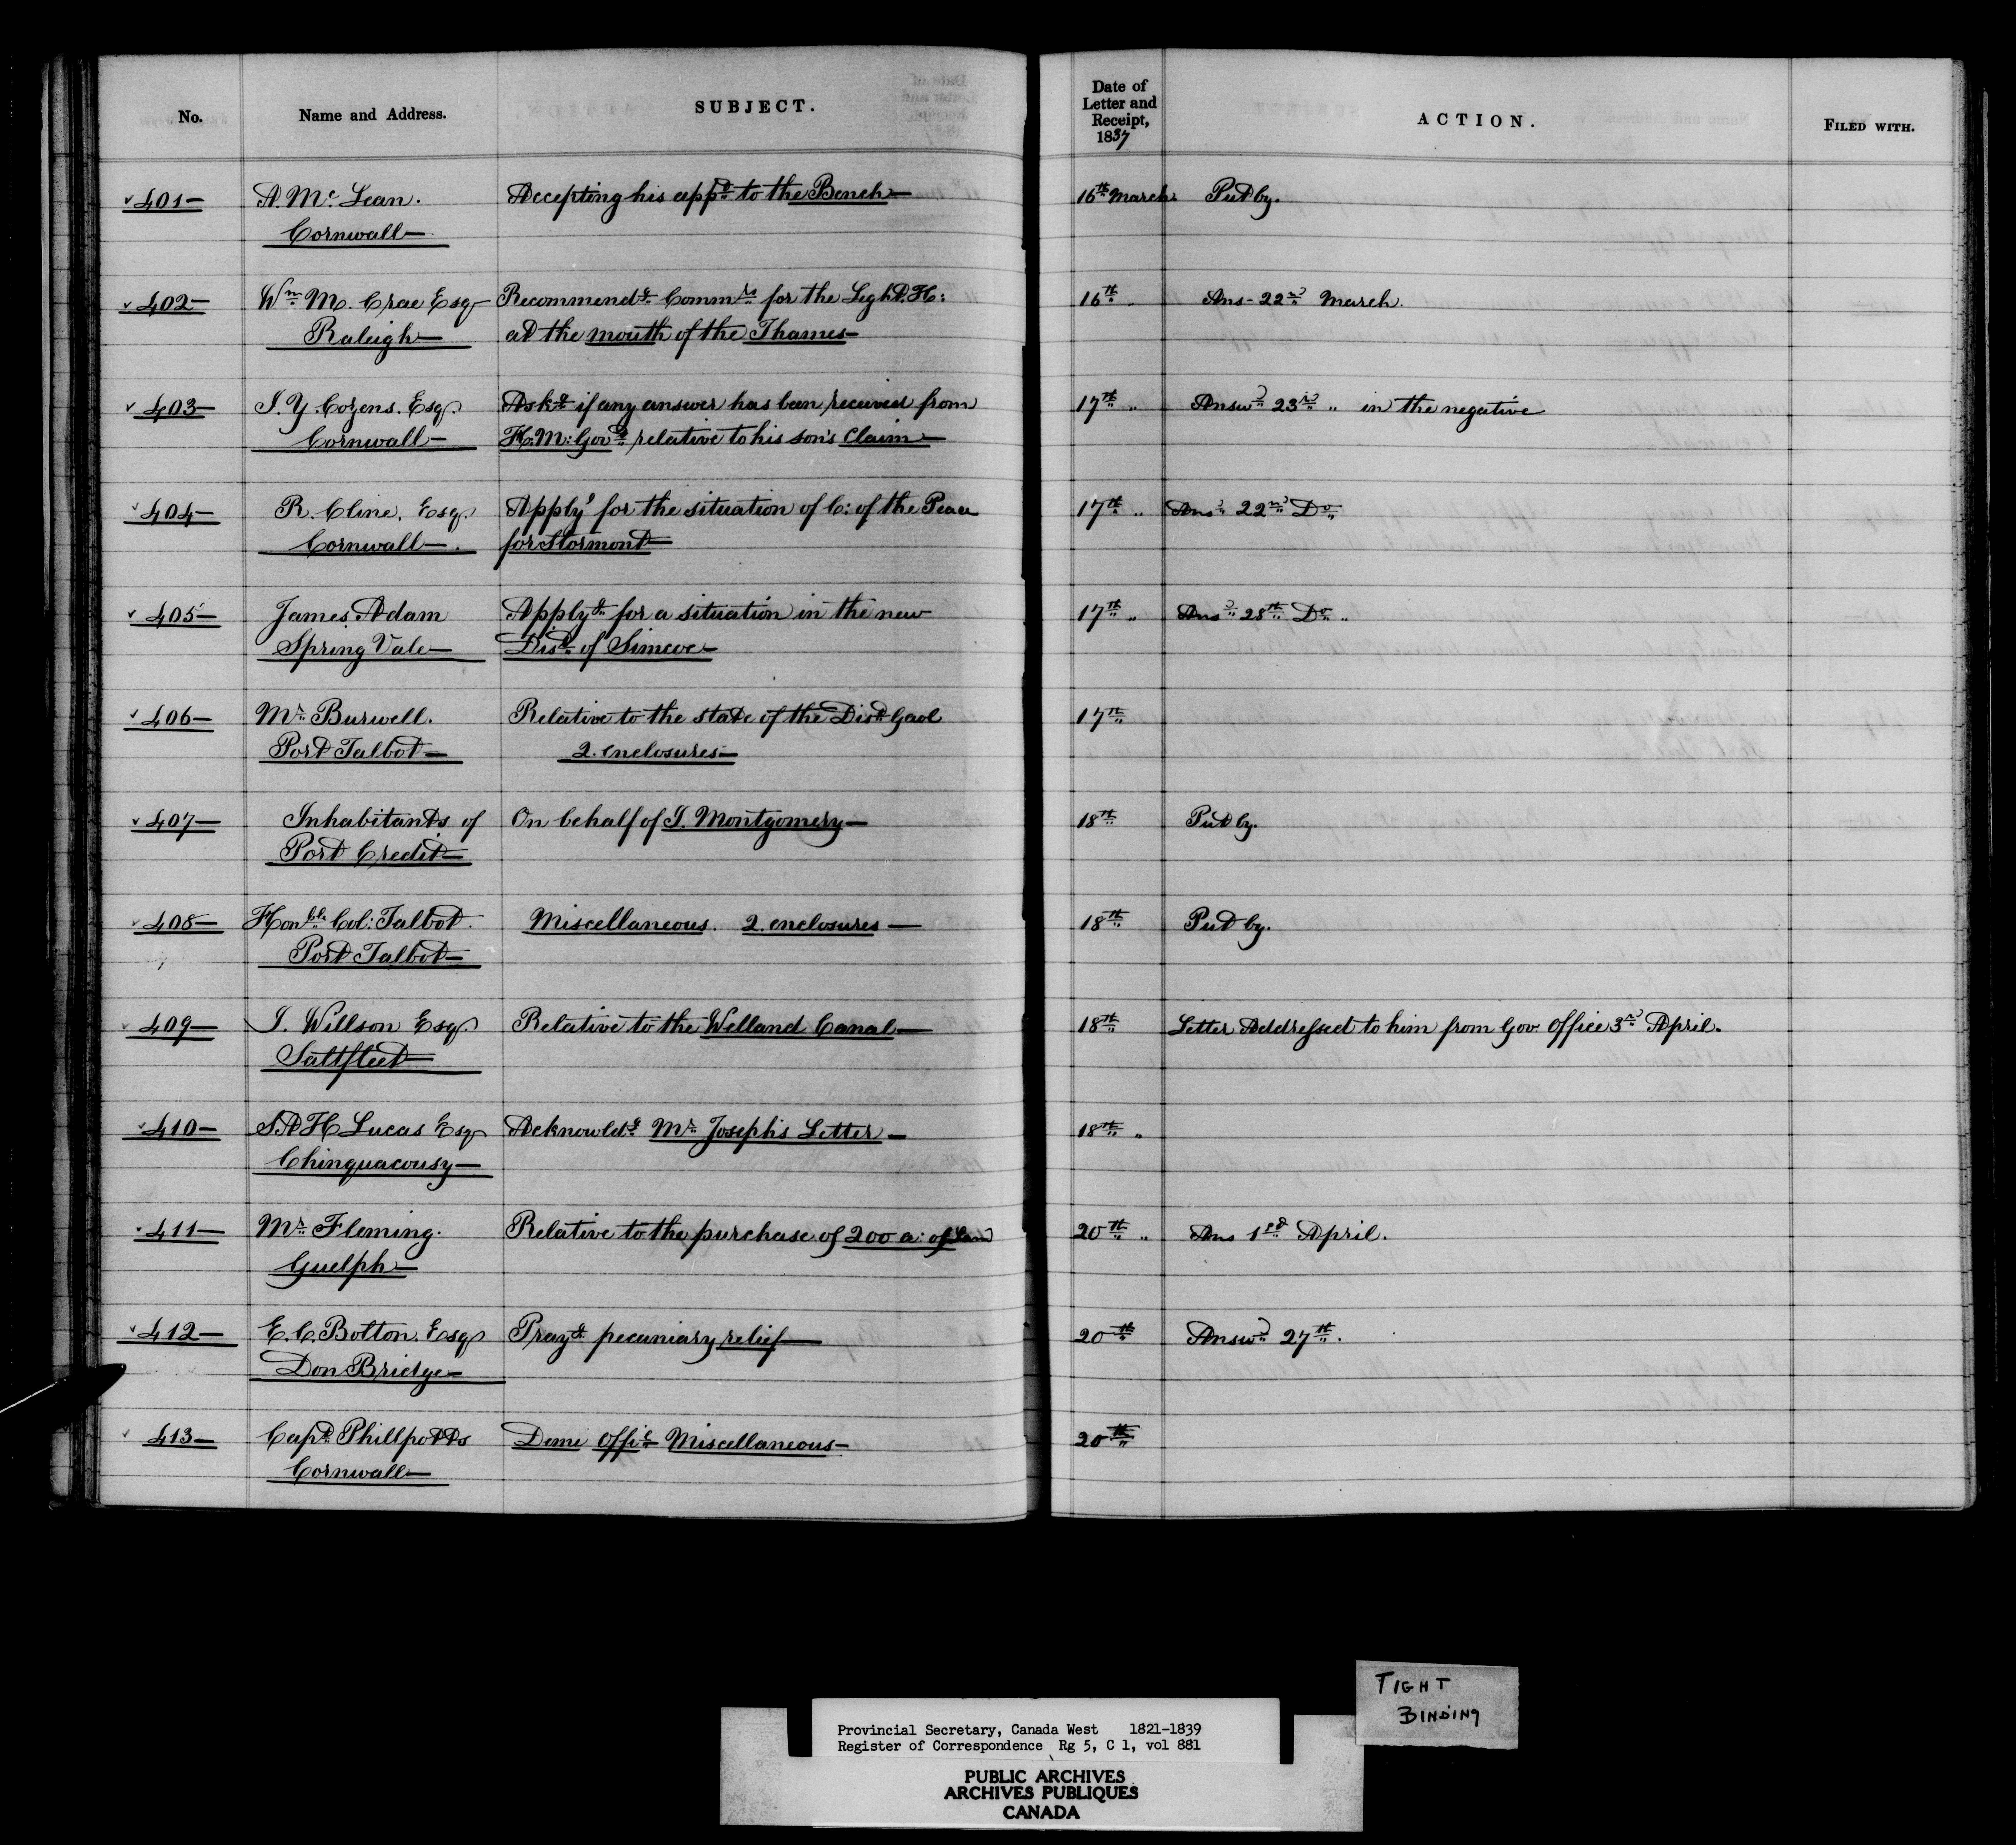 No. Name and Address. SUBJECT. Date of Letter and Receipt, 1837 ACTION. FILED WITH.
401 A. Mc Lean. Accepting his appt to the Bench 16th March Put by.
Cornwall
402 Wm Mc Crae Esq Recommendg Commrs for the Light H: 16th Ans- 22nd March.
Raleigh at the mouth of the Thames
403 J. Y. Cozens. Esq. Askg if any answer has been received from 17th " Answd 23rd " in the negative
Cornwall H: M: Govt relative to his son's Claim
404 R. Cline. Esq. Applyg for the situation of C: of the Peace 17th " Ansd 22nd Do
Cornwall for Stormont
405 James Adam Applyg for a situation in the new 17th " Ansd 28th Do "
Spring Vale Dist of Simcoe
406 Mr Burwell. Relative to the state of the Dist Gaol 17th
Port Talbot 2. enclosures
407 Inhabitants of On behalf of J. Montgomery 18th Put by.
Port Credit
408 Honble Col: Talbot. Miscellaneous. 2. enclosures 18th Put by.
Port Talbot
409 J. Willson Esq. Relative to the Welland Canal 18th Letter Addressed to him from Gov. Office 3rd April.
Saltfleet
410 S.A H Lucas Esq Acknowldg Mr Joseph's Letter 18th "
Chinquacousy
411 Mr Fleming. Relative to the purchase of 200 a: of Land 20th " Ans 1st April.
Guelph
412 E. C. Bolton. Esq Prayg pecuniary relief 20th Answd 27th.
Don Bridge
413 Capt Phillpotts Demi Offil Miscellaneous 20th
Cornwall
TIGHT
BINDING
Provincial Secretary, Canada West 1821-1839
Register of Correspondence Rg 5, C 1, vol 881
PUBLIC ARCHIVES
ARCHIVES PUBLIQUES
CANADA